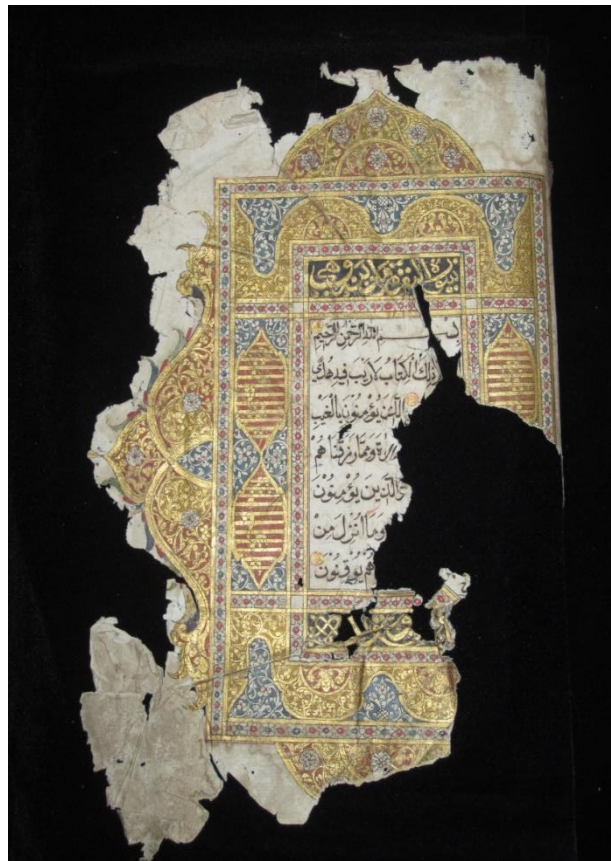 سورة البقرة
بِسْمِ اللهِ الرَّحْمٰنِ الرَّحِيْمِ
ذٰلِكَ الْكِتَابُ لَا رَيْبَ فِيْهِ هُدًى
الَّذِيْنَ يُؤْمِنُوْنَ بِالْغَيْبِ
وَمِمَّا رَزَقْنَاهُمْ
الَّذِيْنَ يُؤْمِنُوْنَ
وَمَا اُنْزِلَ مِنْ
هُمْ يُوْقِنُوْنَ